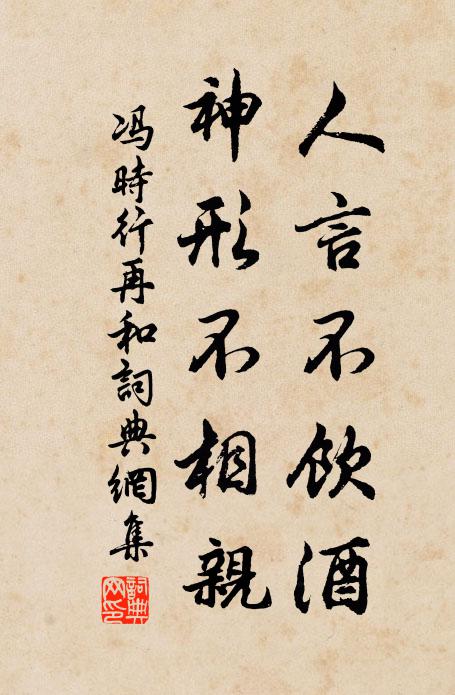 人言不飲酒
神形不相親
馮時行再和詞典網集
詞典